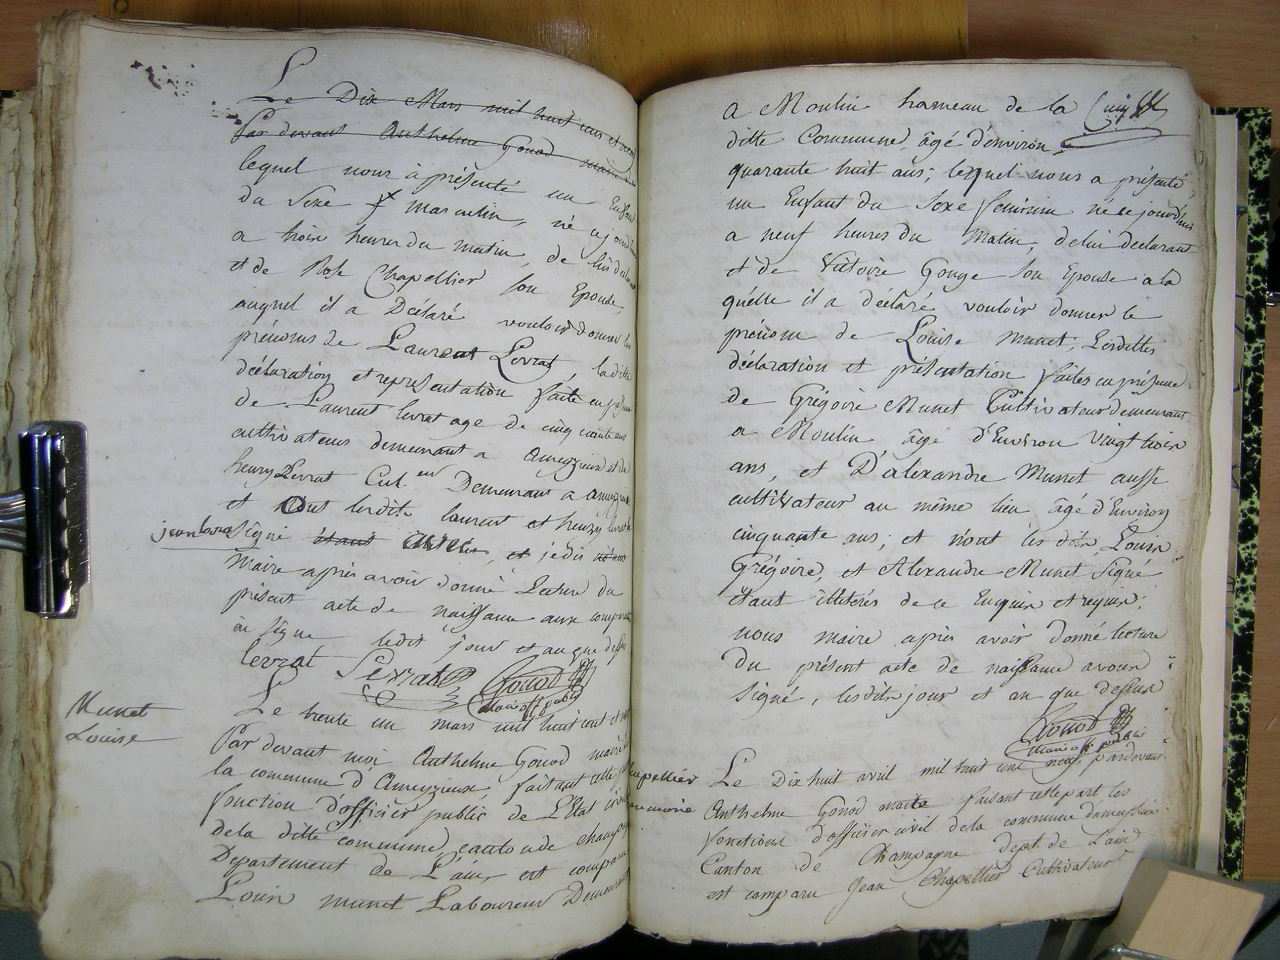 Le Dix Mars mil huit cent et neuf
Par devant Anthelme Gonod maire
lequel nous à présenté un Enfant
du Sexe masculin, né ajourd'hui
a trois heures du matin, de lui déclarant
et de Rose Chapellier son Epouse,
auquel il a Déclaré vouloir donner les
prénoms de Laurent Levrat, la ditte
déclaration et representation faite en présence
de Laurent levrat age de cinquante ans
cultivateurs demeurant a Ameyzieu et de
henry Levrat Cul.eur Demeurant a
et ont lesdits laurent et henry levrat
jean levrat Signé étant avec et jedis
Maire après avoir donné Lecture du
présent acte de naissance aux comparants
ai signe ledit jour et an que dessus
levrat Levrat Gonod
maire off. public
Munet
Louise
Le trente un mars mil huit cent et neuf
Par devant moi Anthelme Gonod maire de
la commune d'Ameyzieux, faisant cette part
fonction d'officier public de L'Etat civil
de la ditte commune, canton de champagne
Departement de L'ain, est comparu
Louis munet Laboureur Demeurant
a Moulin hameau de la
ditte Commune, âgé d'environ
quarante huit ans; lequel nous a présenté
un Enfant du Sexe feminin né ce jourd'hui
a neuf heures du Matin, de lui declarant
et de Victoire Gonge son Epouse a la
quélle il a déclaré vouloir donner le
prénom de Louise Munet; Lesdittes
déclaration et présentation faites en présence
de Grégoire Munet Cultivateur demeurant
a Moulin âgé d'Environ vingt trois
ans, et D'alexandre Munet aussi
cultivateur au même lieu âgé d'Environ
cinquante ans; et n'ont les dits Louis
Grégoire, et Alexandre Munet Signé
étant illiterés de ce Enquis et requis;
nous maire après avoir donné lecture
du présent acte de naissance avons
Signé, lesdits jour et an que dessus
Gonod
maire off. public
Chapellier
Le Dix huit avril mil huit cent neuf, pardevant
Anthelme Gonod maite faisant cette part les
fonctions d'officier civil de la commune d'ameyzieu
Canton de Champagne dept. de L'ain
est comparu Jean Chapellier Cultivateur